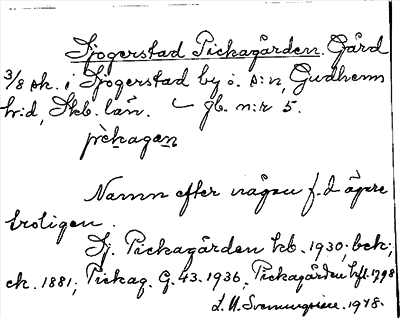 Sjogerstad Pickagården. Gård
3/8 sk. i Sjogerstad by o. s:n, Gudhems
h:d, Skb. län. gb. n:r 5.
pickagan
Namn efter någon f. d. ägare
troligen.
Sj. Pickagården kb. 1930; bek;
ek. 1881; Pickag. G. 43. 1936. Pickagården 1798
1948.